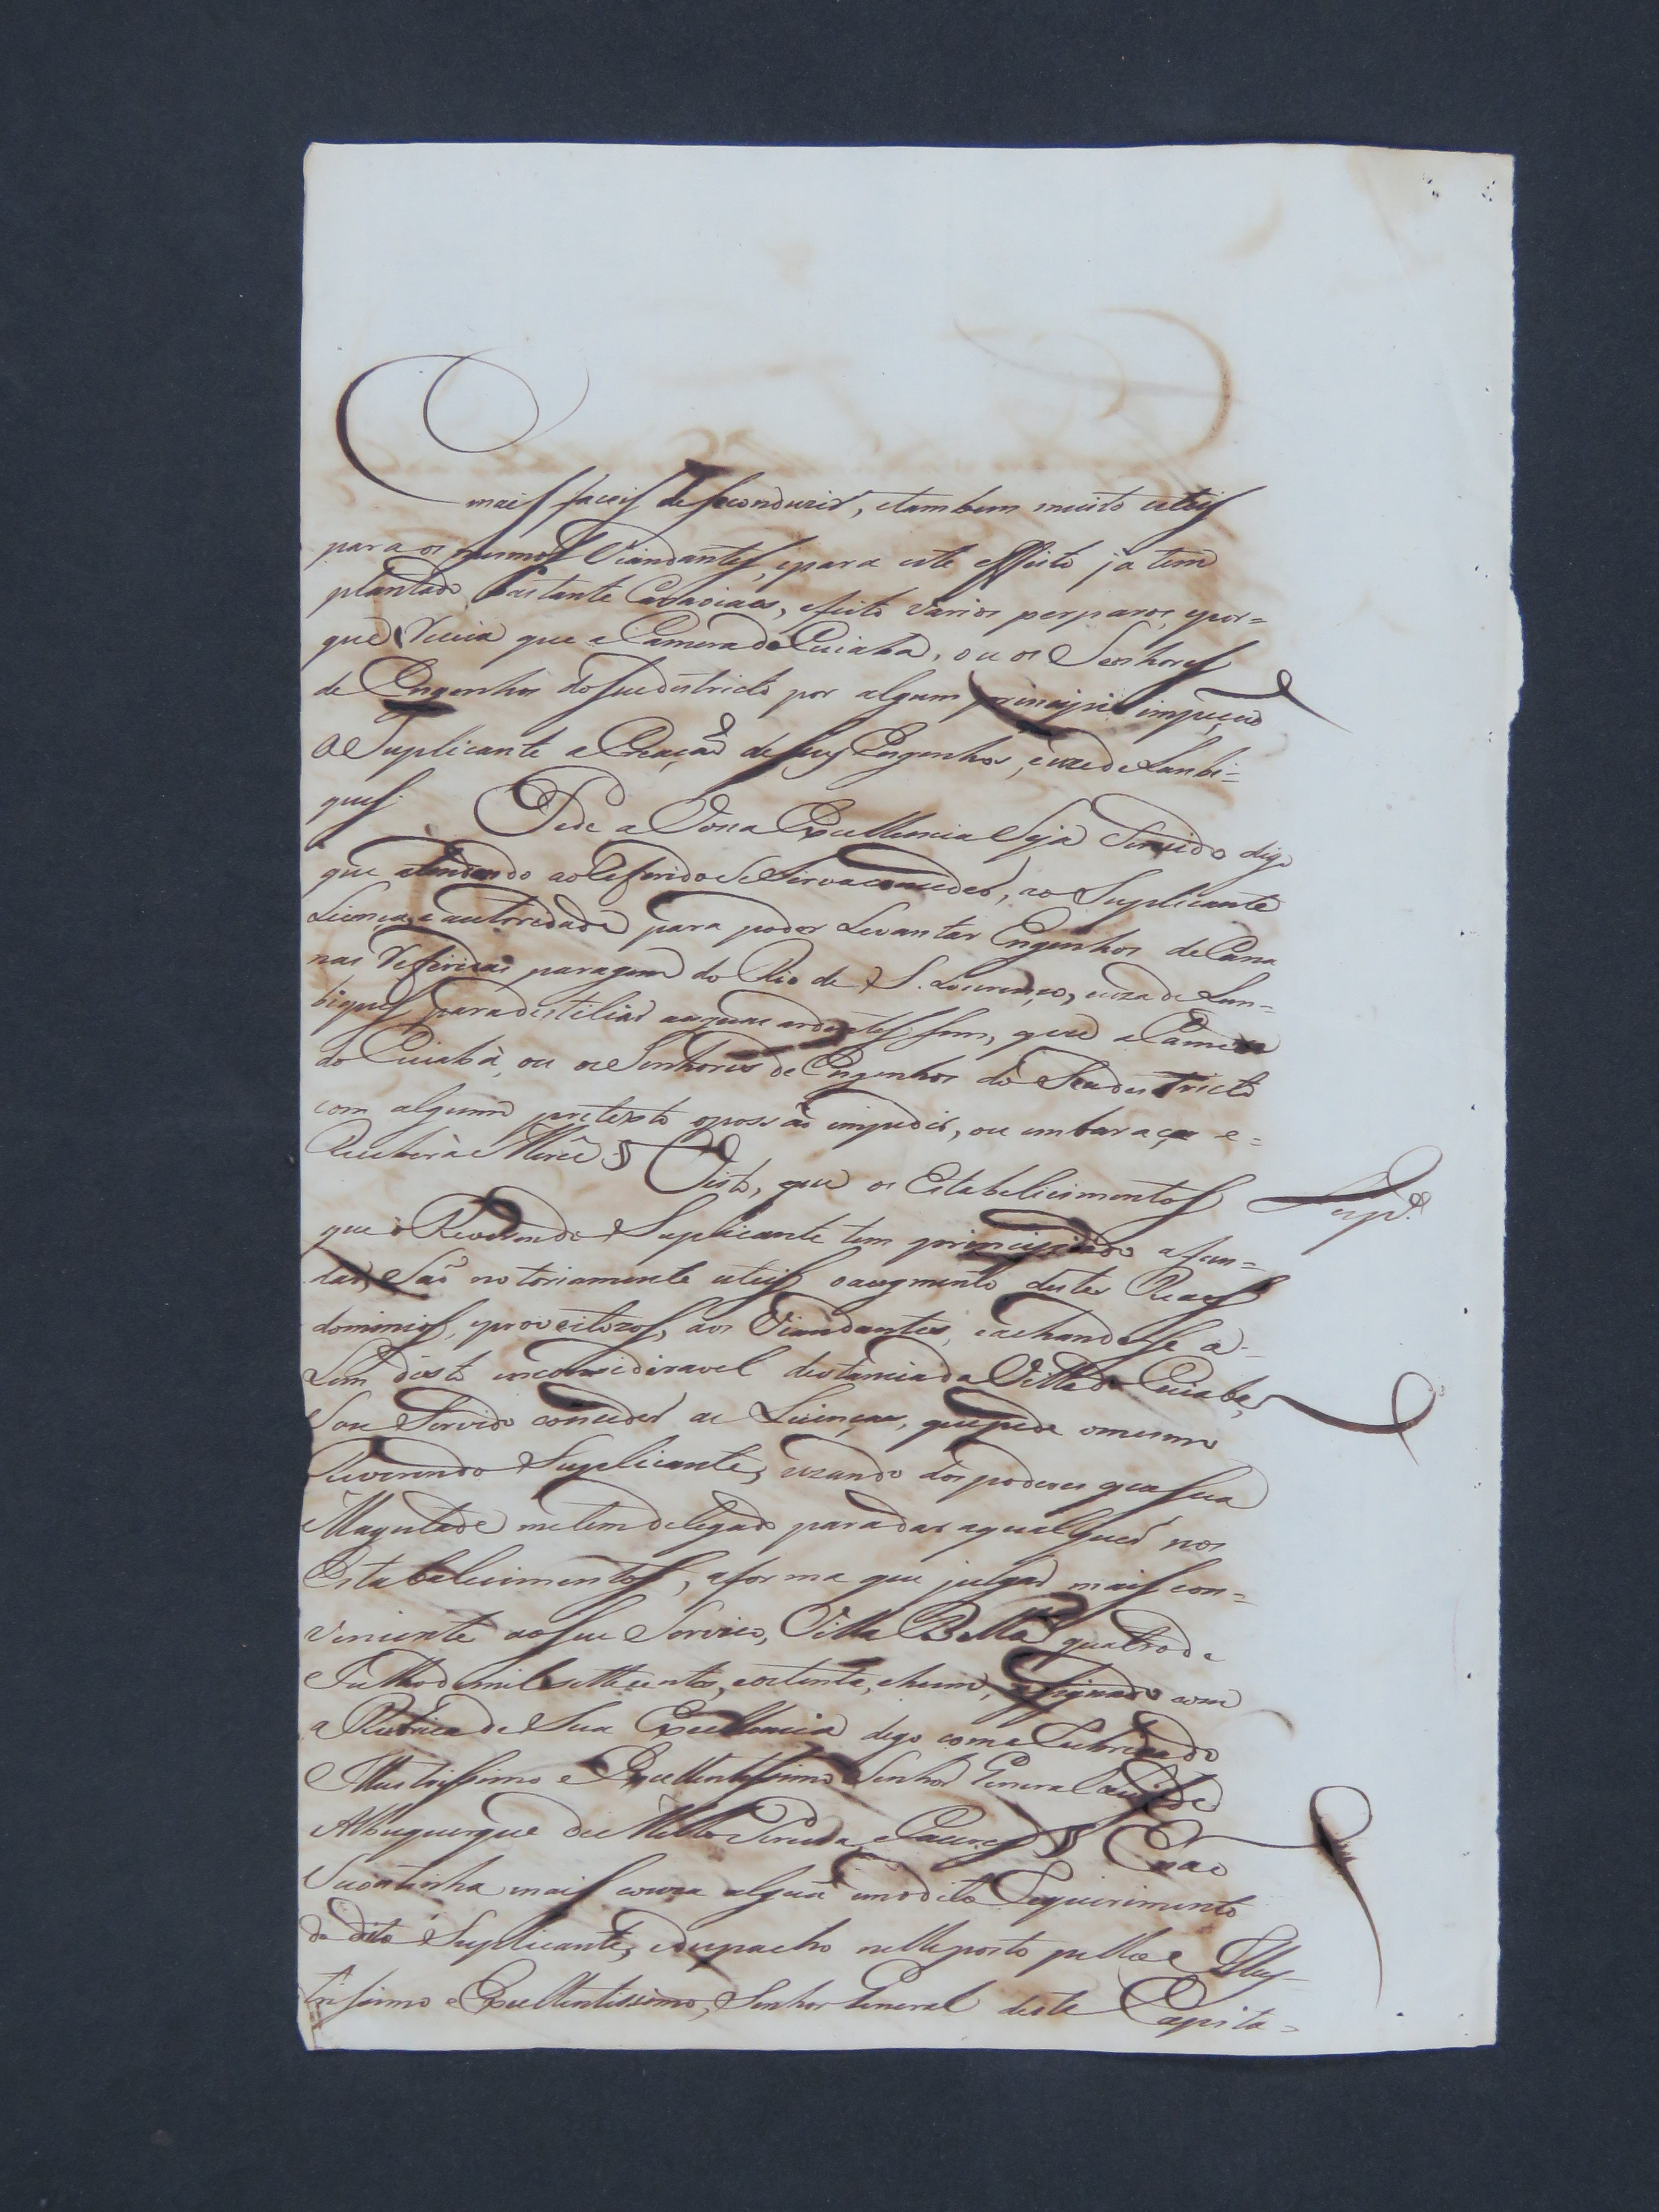 mais faceis de se conduzir, etambem muito uteis
para os mesmos Viandantes, epara este effeito ja tem
plantado bastante Canaviaes, efeito varios perparos, epor=
que Receia que a Camera do Cuiaba, ou os Senhores
de Engenhos do Seu destricto por algum principio impeção
O Suplicante a Creação de seus Engenhos, euzo de Lanbi=
ques. Pede a Vossa Excellencia Seja Servido digo
que atendendo ao Referido Se Sirva conceder, ao Suplicante
Licença, e autoridade para poder Levantar Engenhos de Cana
nas Referidas paragens do Rio de S. Lourenço, euza de Lan=
biques para destiliar augoas ardentes sem, que a Camera
do Cuiabá, ou os Senhores de Engenhos do Seu destricto
com algum pretexto opossão impedir, ou embaraçar e=
Receberà Merce § Visto, que os Estabelicimentos Desp.º
que o Reverendo Suplicante tem principiado afun=
dar, São notoriamente uteis oaugmento destes Reaes
dominios, eproveitozos, aos Viandantes, eachandosse a=
Lem disto inconsideravel destancia da Villa do Cuiaba,
Sou Servido conceder as Licenças, quepede omesmo
Reverendo Suplicante, uzando dos poderes que Sua
Magestade metem delegado para dar aqualquer nos
Estabelecimentos, aforma que julgar mais con=
viniente ao Seu Serviço, Villa Bella quatro de
Julho de mil settecentos, eoitenta, ehum, assignado com
a Rubrica de Sua Excellencia digo coma Rubrica do
Illustrissimo e Excellentissimo Senhor General Luis de
Albuquerque de Mello Pereira, e Caceres § Enao
Secontinha mais couza algũa emo dito Requerimento
do dito Suplicante, edespacho nelle posto pello Illus=
trissimo e Excellentissimo, Senhor General desta Capita=